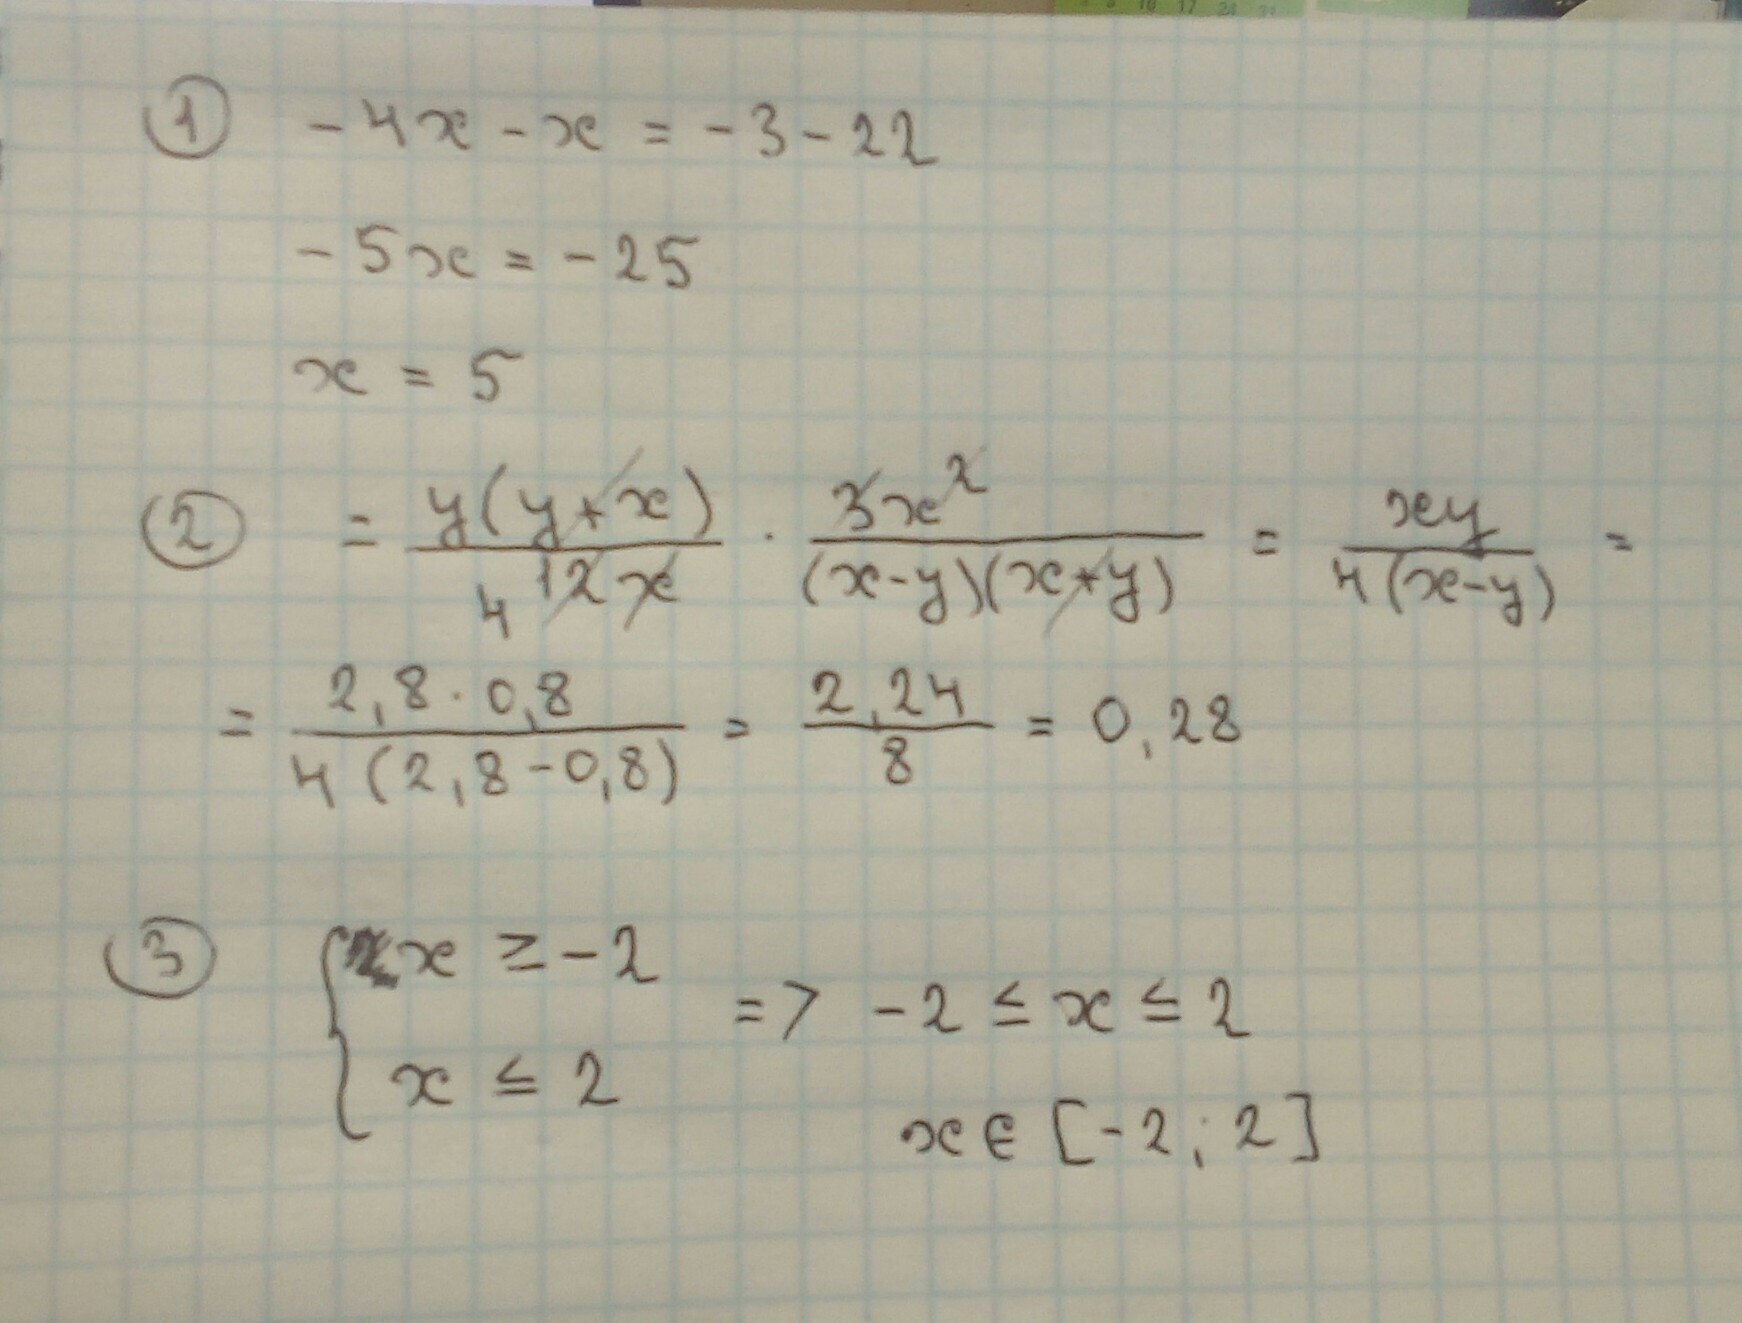 ① -4x - x = -3 - 22
-5x = -25
x = 5
② = y(y+x)/4 12x · 3x²/(x-y)(x+y) = xy/4(x-y) =
= 2,8 · 0,8/4(2,8-0,8) = 2,24/8 = 0,28
③ { x ≥ -2
x ≤ 2 => -2 ≤ x ≤ 2
x ∈ [-2; 2]